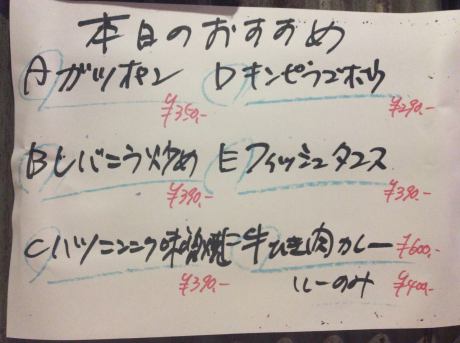 本日のおすすめ
Aガツポン ¥350.-
Dキンピラゴボウ ¥290.-
Bレバニラ炒め ¥390.-
Eフィッシュタコス ¥390.-
Cハツニンニク味噌焼 ¥390.-
牛ひき肉カレー ¥600.-
ルーのみ ¥400.-